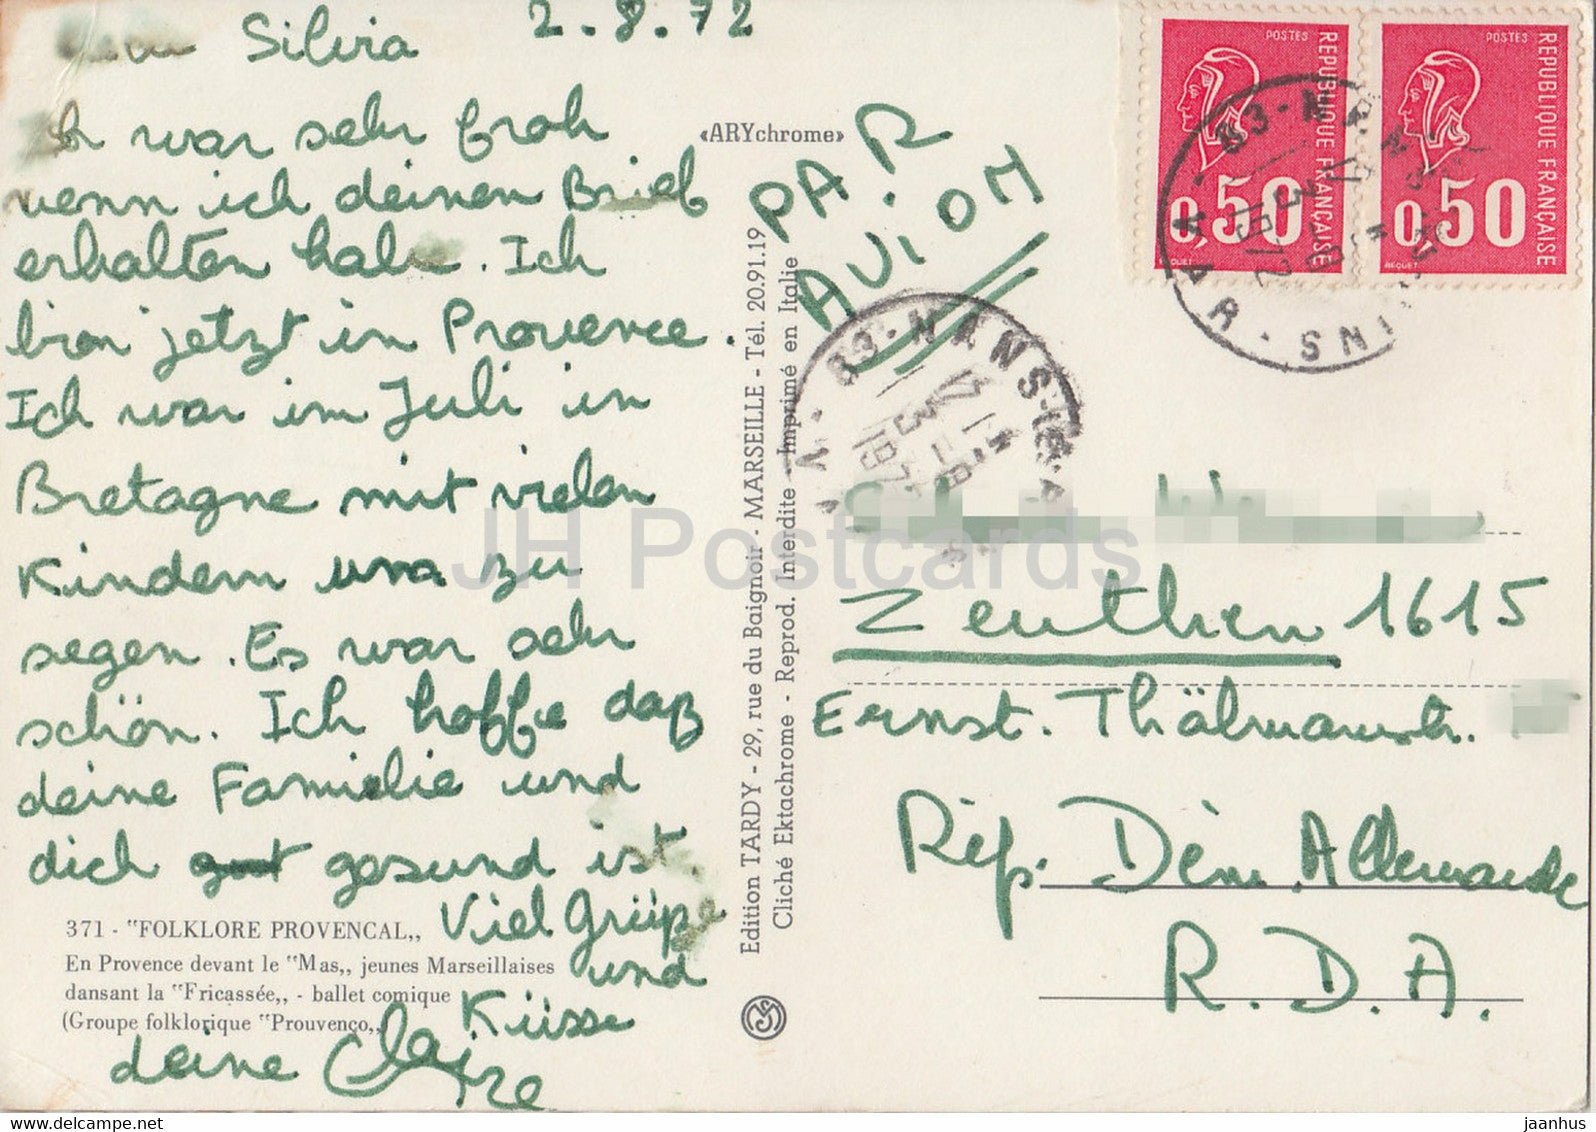 Silvia 2.8.72
Ich war sehr froh
wenn ich deinen Brief
erhalten habe. Ich
bin jetzt in Provence.
Ich war im Juli in
Bretagne mit vielen
Kindern um zu
segen. Es war sehr
schön. Ich hoffe daß
deine Familie und
dich gut gesund ist.
Viel Grüße
und
Küsse
deine Claire
371 - "FOLKLORE PROVENCAL„
En Provence devant le "Mas„ jeunes Marseillaises
dansant la "Fricassée„ - ballet comique
(Groupe folklorique "Prouvenço„
«ARYchrome»
PAR
AVION
Edition TARDY - 29, rue du Baignoir - MARSEILLE - Tél. 20.91.19
Cliché Ektachrome - Reprod. Interdite - Imprimé en Italie
POSTES
REPUBLIQUE FRANÇAISE
0,50
BEQUET
POSTES
REPUBLIQUE FRANÇAISE
0,50
BEQUET
83-NANS
VAR
Zeuthen 1615
Ernst. Thälmannstr.
Rép. Dém. Allemande
R.D.A.
JH Postcards
www.delcampe.net
jaanhus